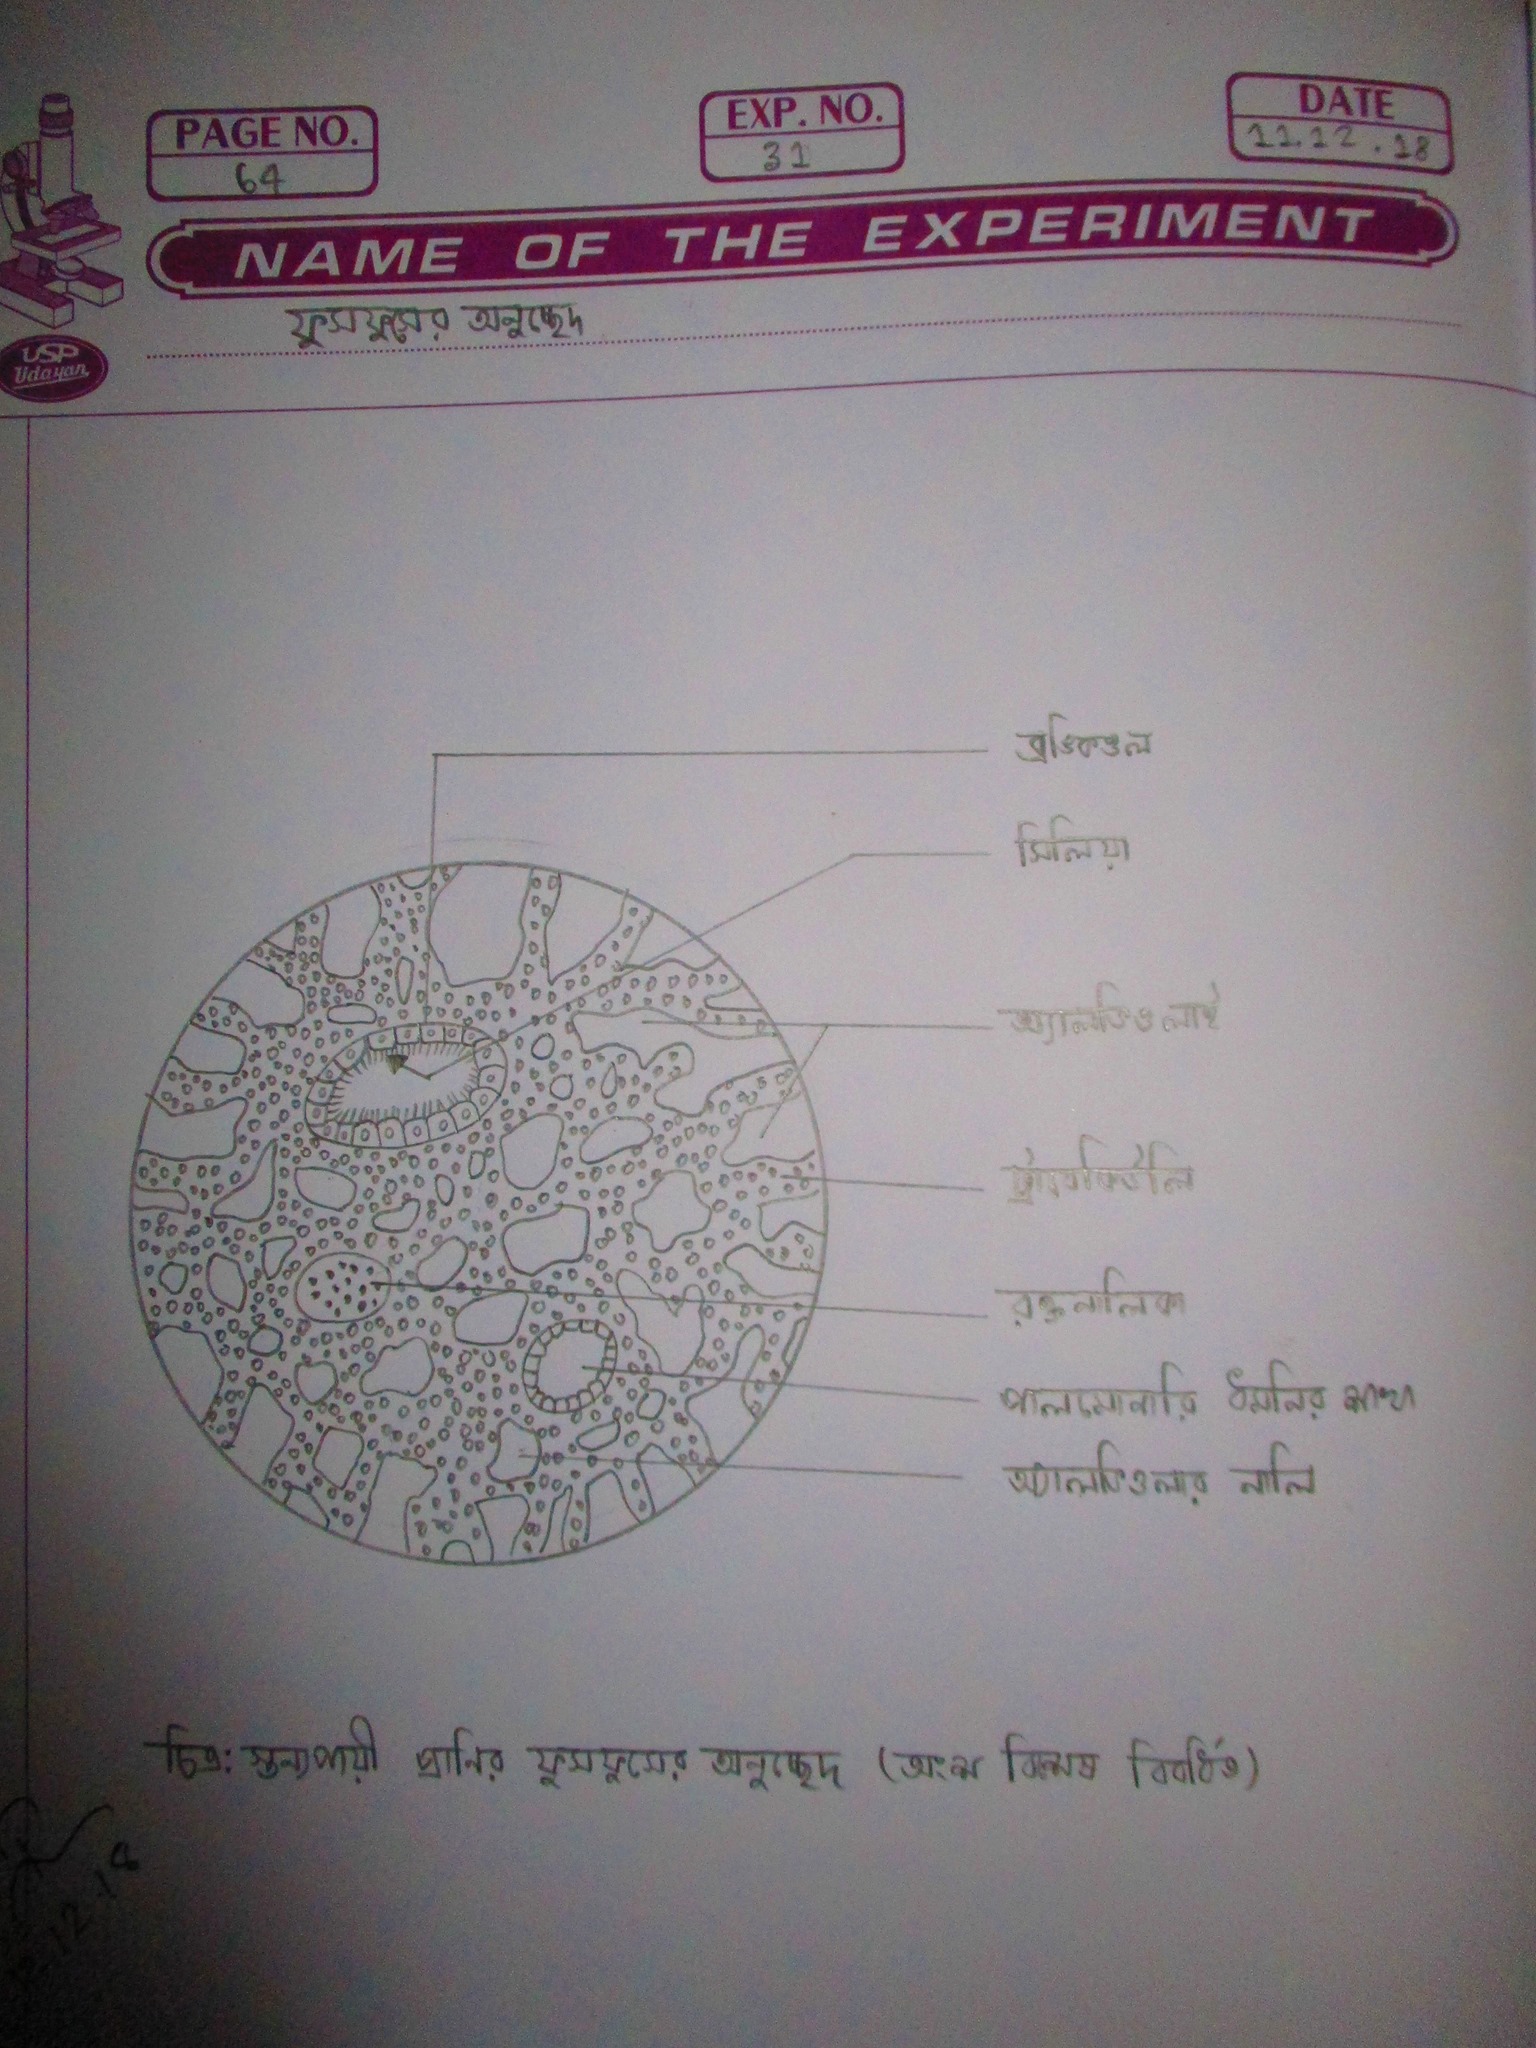 PAGE NO.
64
EXP. NO.
31
DATE
11.12.18
NAME OF THE EXPERIMENT
ফুসফুসের অনুচ্ছেদ
USP
Udayan
ব্রঙ্কিওল
সিলিয়া
অ্যালভিওলাই
ট্রাবেকিউলি
রক্তনালিকা
পালমোনারি ধমনির শাখা
অ্যালভিওলার নালি
চিত্র: স্তন্যপায়ী প্রানির ফুসফুসের অনুচ্ছেদ (অংশ বিশেষ বিবর্ধিত)